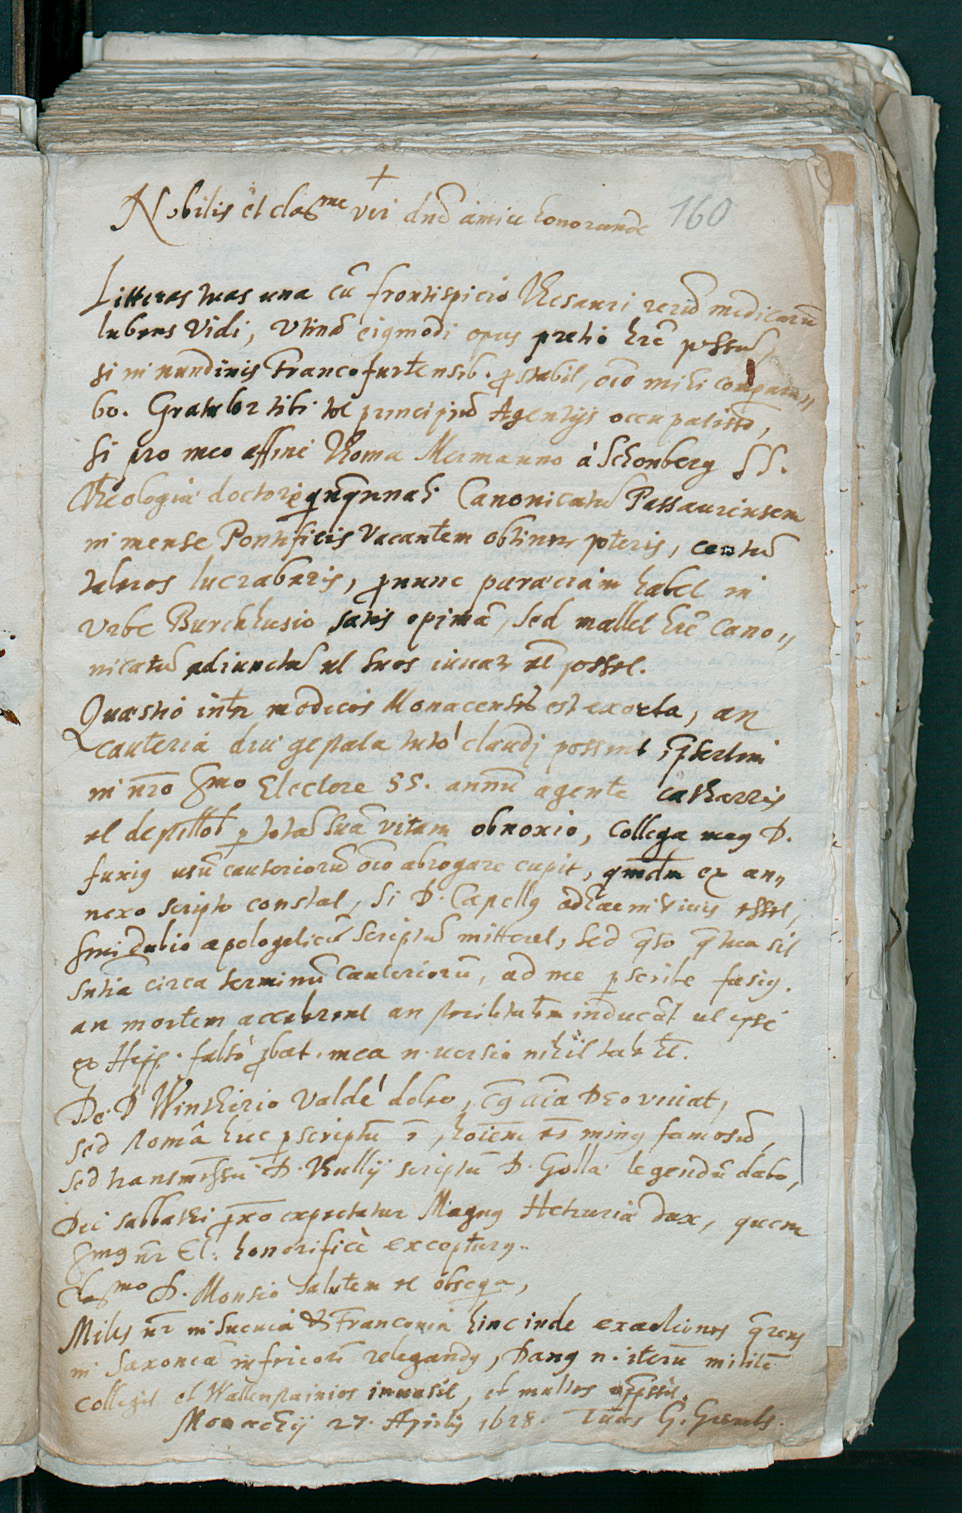 +
Nobilis et clarme vir dne amice honorande 160
Litteras tuas una cũ frontispicio Thesauri rerũ medicarũ
lubens vidi, utinã eiusmodi opus pretio hrē possẽ,
si in nundinis Francofurtensib. prostabit, oīo mihi compara„
bo. Gratulor tibi tot principũ Agentijs occupatissō,
si pro meo affini Thoma Mermanno à Schonberg SS.
Theologiæ doctore Canonicatũ Passauiensem
in mense Pontificis vacantem obtinere poteris, centũ
taleros lucraberis, pronunc paræciam habet in
urbe Burckhusio satis opimã, sed mallet hrē Cano„
nicatũ adiunctũ ut suos iuuare possset.
Quæstio inter medicos Monacenses est exorta, an
cauteria diu gestata tutò claudj possint, prsertim
in nro Smo Electore 55. annũ agente catharris
et depillõb p totã suã vitam obnoxio, Collega meus D.
furig usũ cauteriorũ oīo abrogare cupit, qmdm ex an„
nexo scripto constat, si D. Capellg adhuc in viuis esset,
sine dubio apologeticũ scriptũ mitteret, sed qso q tua sit
sntia circa terminũ cauteriorũ, ad me pscribe
an mortem accelerent an sterilitatem inducãt ut ipse
ex Hipp. falsò probat. mea n. uersio nihil tale
De D. Winthirio valdè doleo, cuius aīa Deo viuat,
sed Romã huc pscriptũ ẽ, hoīem eũ minus famosũ,
sed transmissũ D. Thullij scriptũ D. Golla legendũ dabo,
Die sabbathi prxo expectatur Magnus Hetruriæ dux, quem
Smus nr El: honorificè excepturus.
Clarmo D. Monsio salutem et obseqa,
Miles nr in Sueuia & Franconia hinc inde exactiones qrens
in Saxoniã inferiorẽ relegandus, Danus n. iterũ militẽ
collegit et Wallenstainios inuasit, et multos oppssit.
Monachij 27. Aprilis 1628. Tuus G.